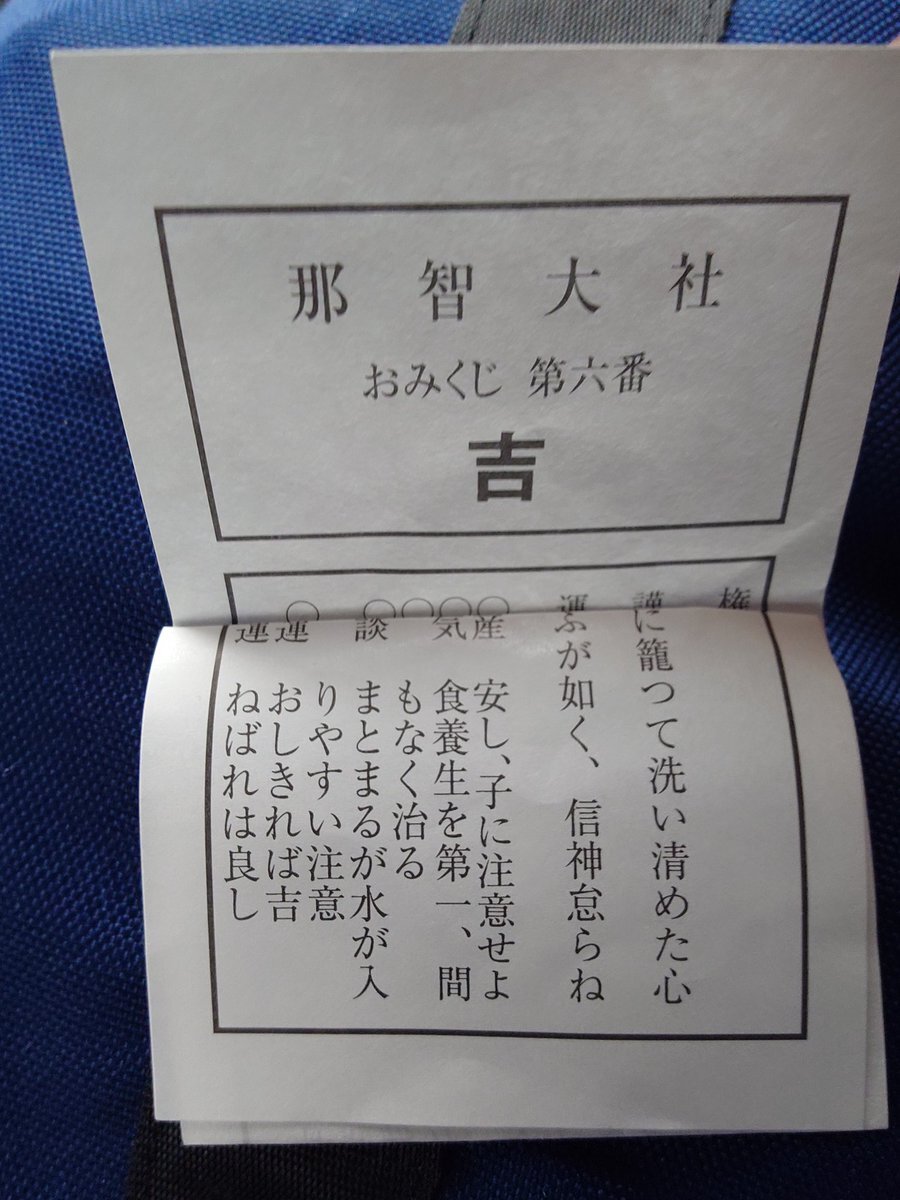 那智大社
おみくじ 第六番
吉
権
謹に籠つて洗い清めた心
運ぶが如く、信神怠らね
○産 安し、子に注意せよ
○気 食養生を第一、間
○ もなく治る
○談 まとまるが水が入
りやすい注意
○運 おしきれば吉
運 ねばれは良し